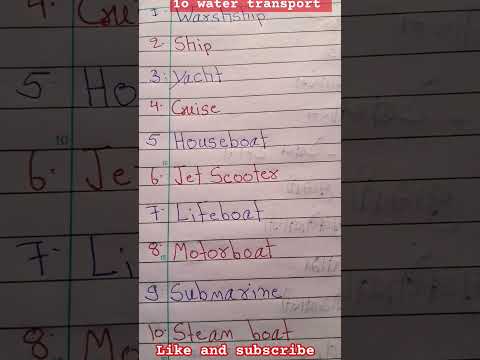 1o water transport
1. Warshship
2 Ship
3. Yacht
4. Cruise
5 Houseboat
6. Jet Scooter
7. Lifeboat
8. Motorboat
9 Submarine
10. Steam boat
Like and subscribe